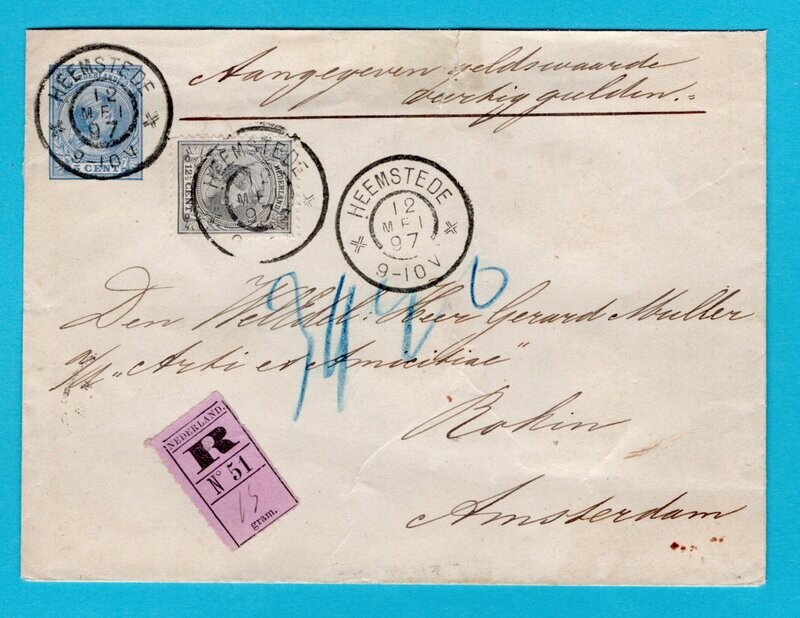 Aangegeven geldswaarde
veertig gulden.
HEEMSTEDE
12
MEI
97
9-10V
5 CENT
HEEMSTEDE
MEI
97
NEDERLAND
12½ CENT
HEEMSTEDE
12
MEI
97
9-10V
Den WelEdl. Heer Gerard Muller
a/h "Arti et Amicitiae"
Rokin
Amsterdam
NEDERLAND.
R
No 51
15
gram.